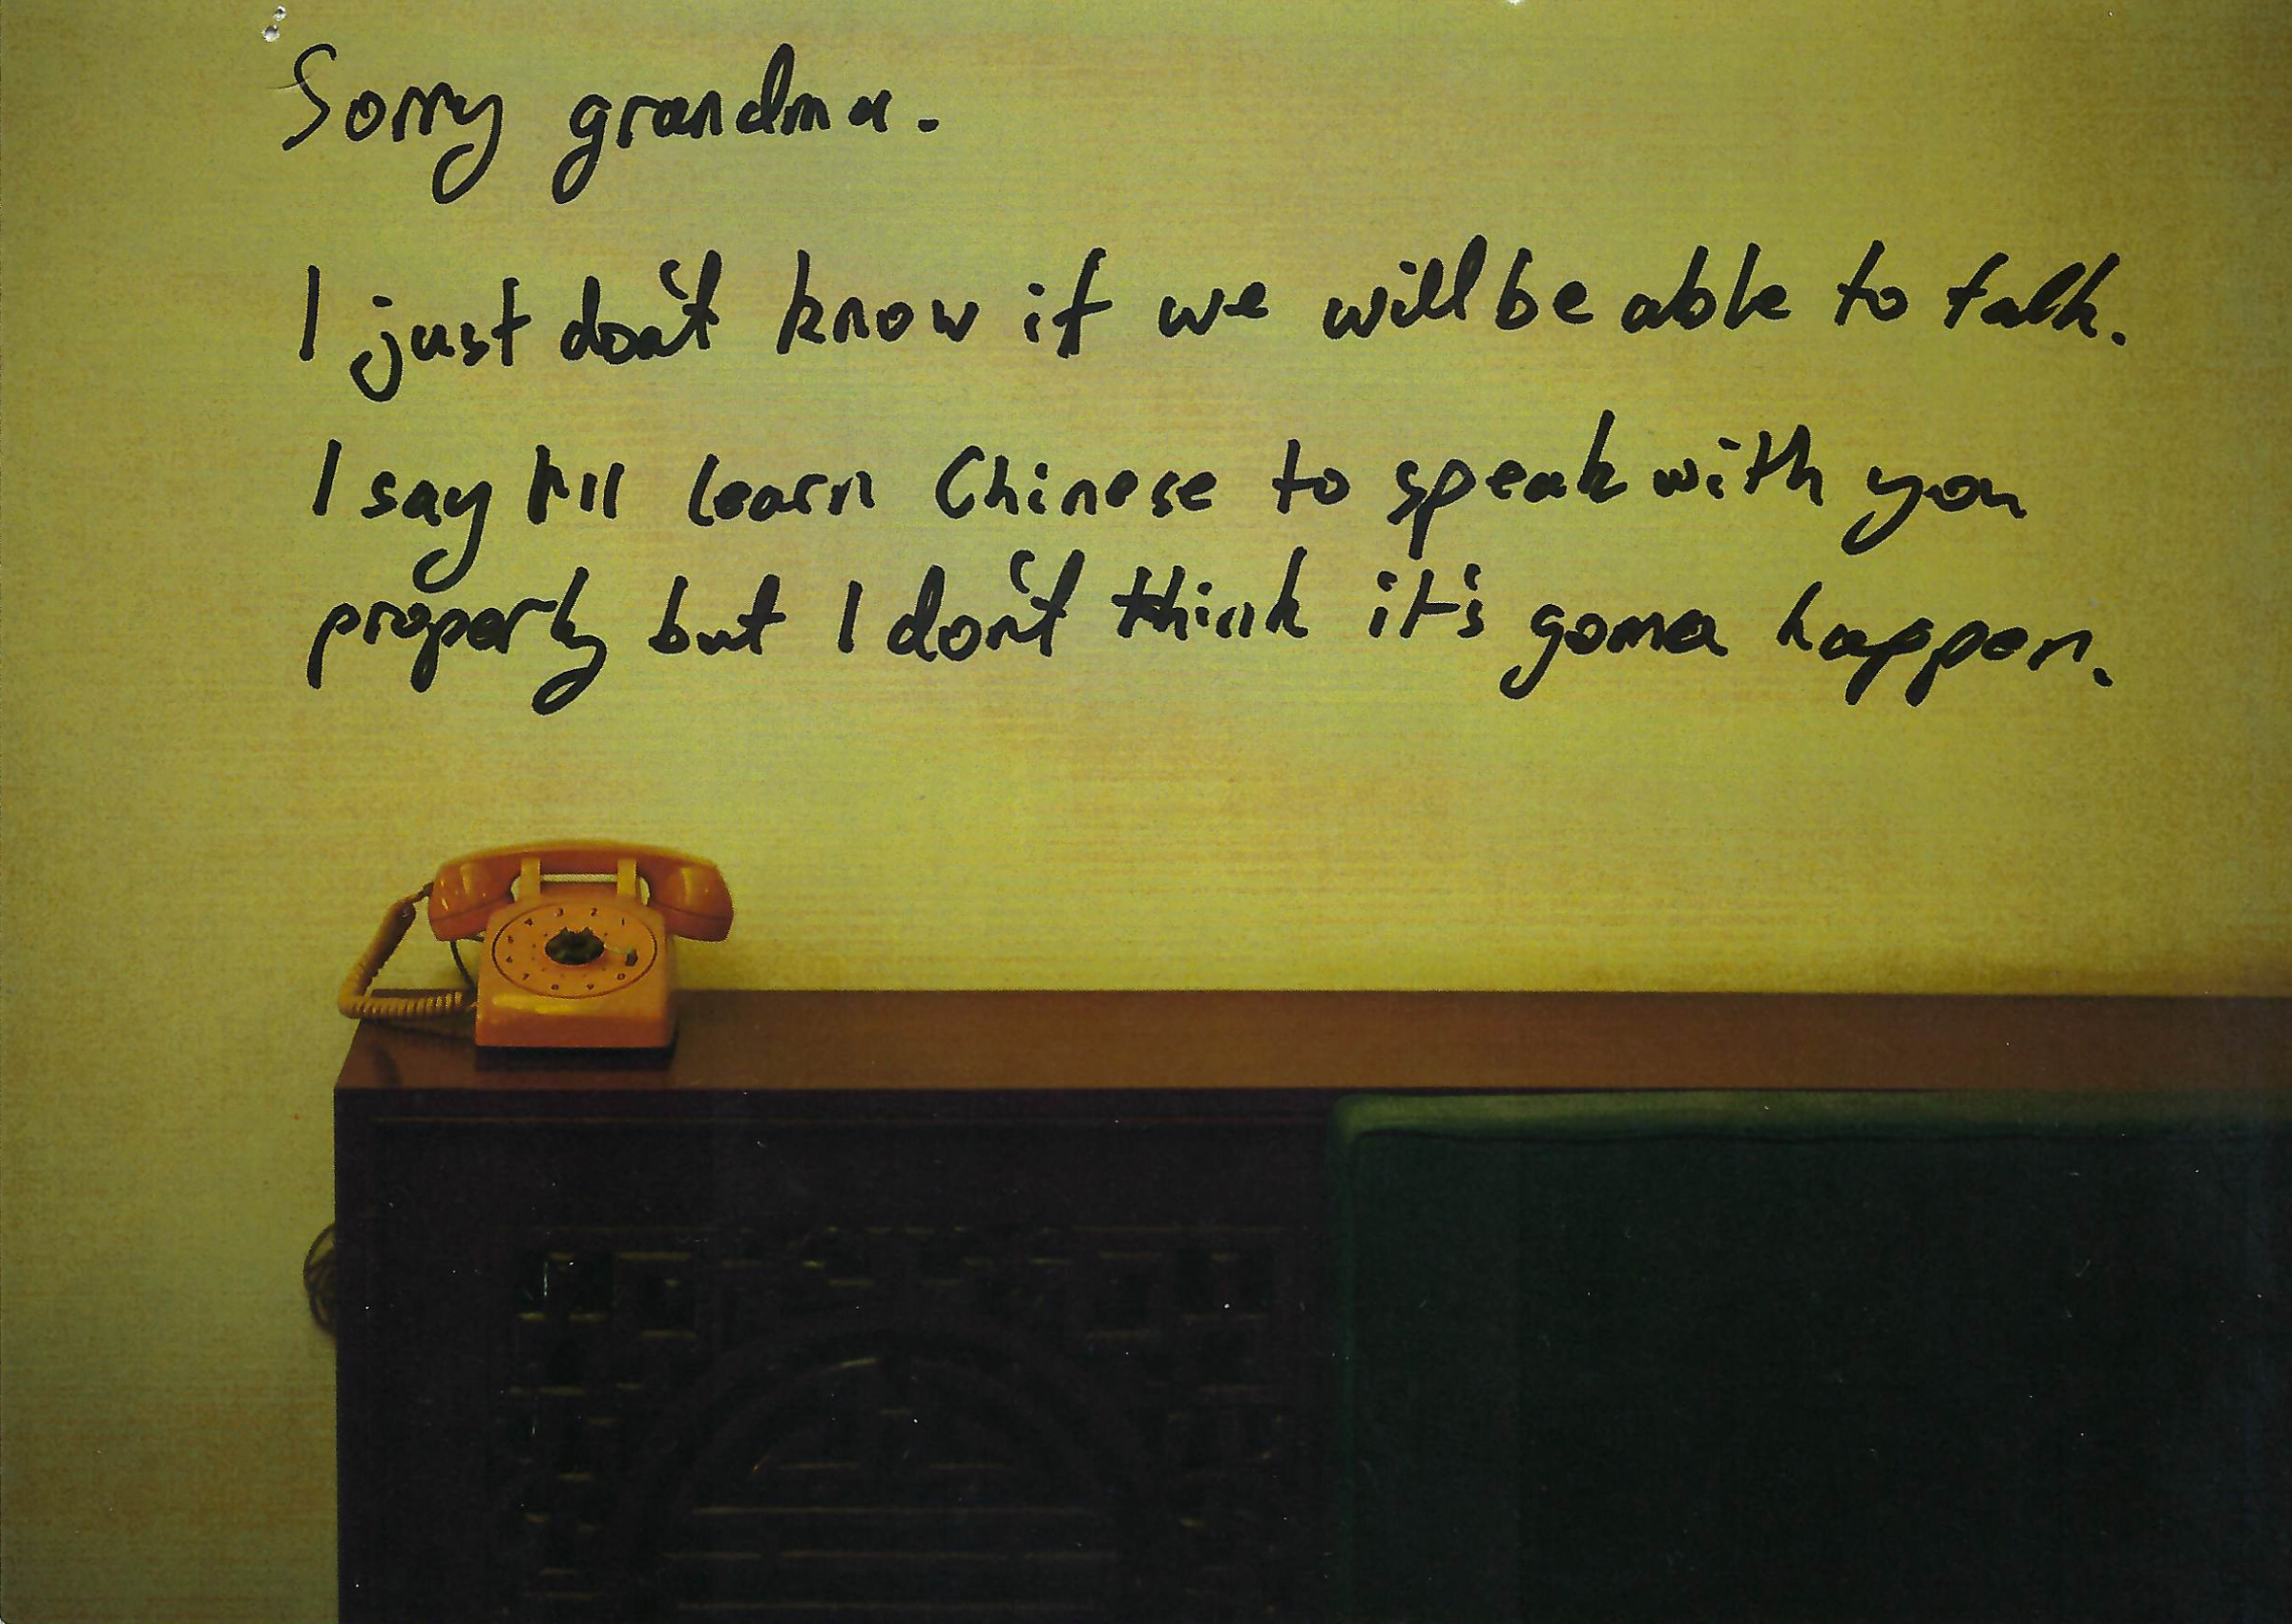 Sorry grandma.
I just don't know if we will be able to talk.
I say I'll learn Chinese to speak with you
properly but I don't think it's gonna happen.